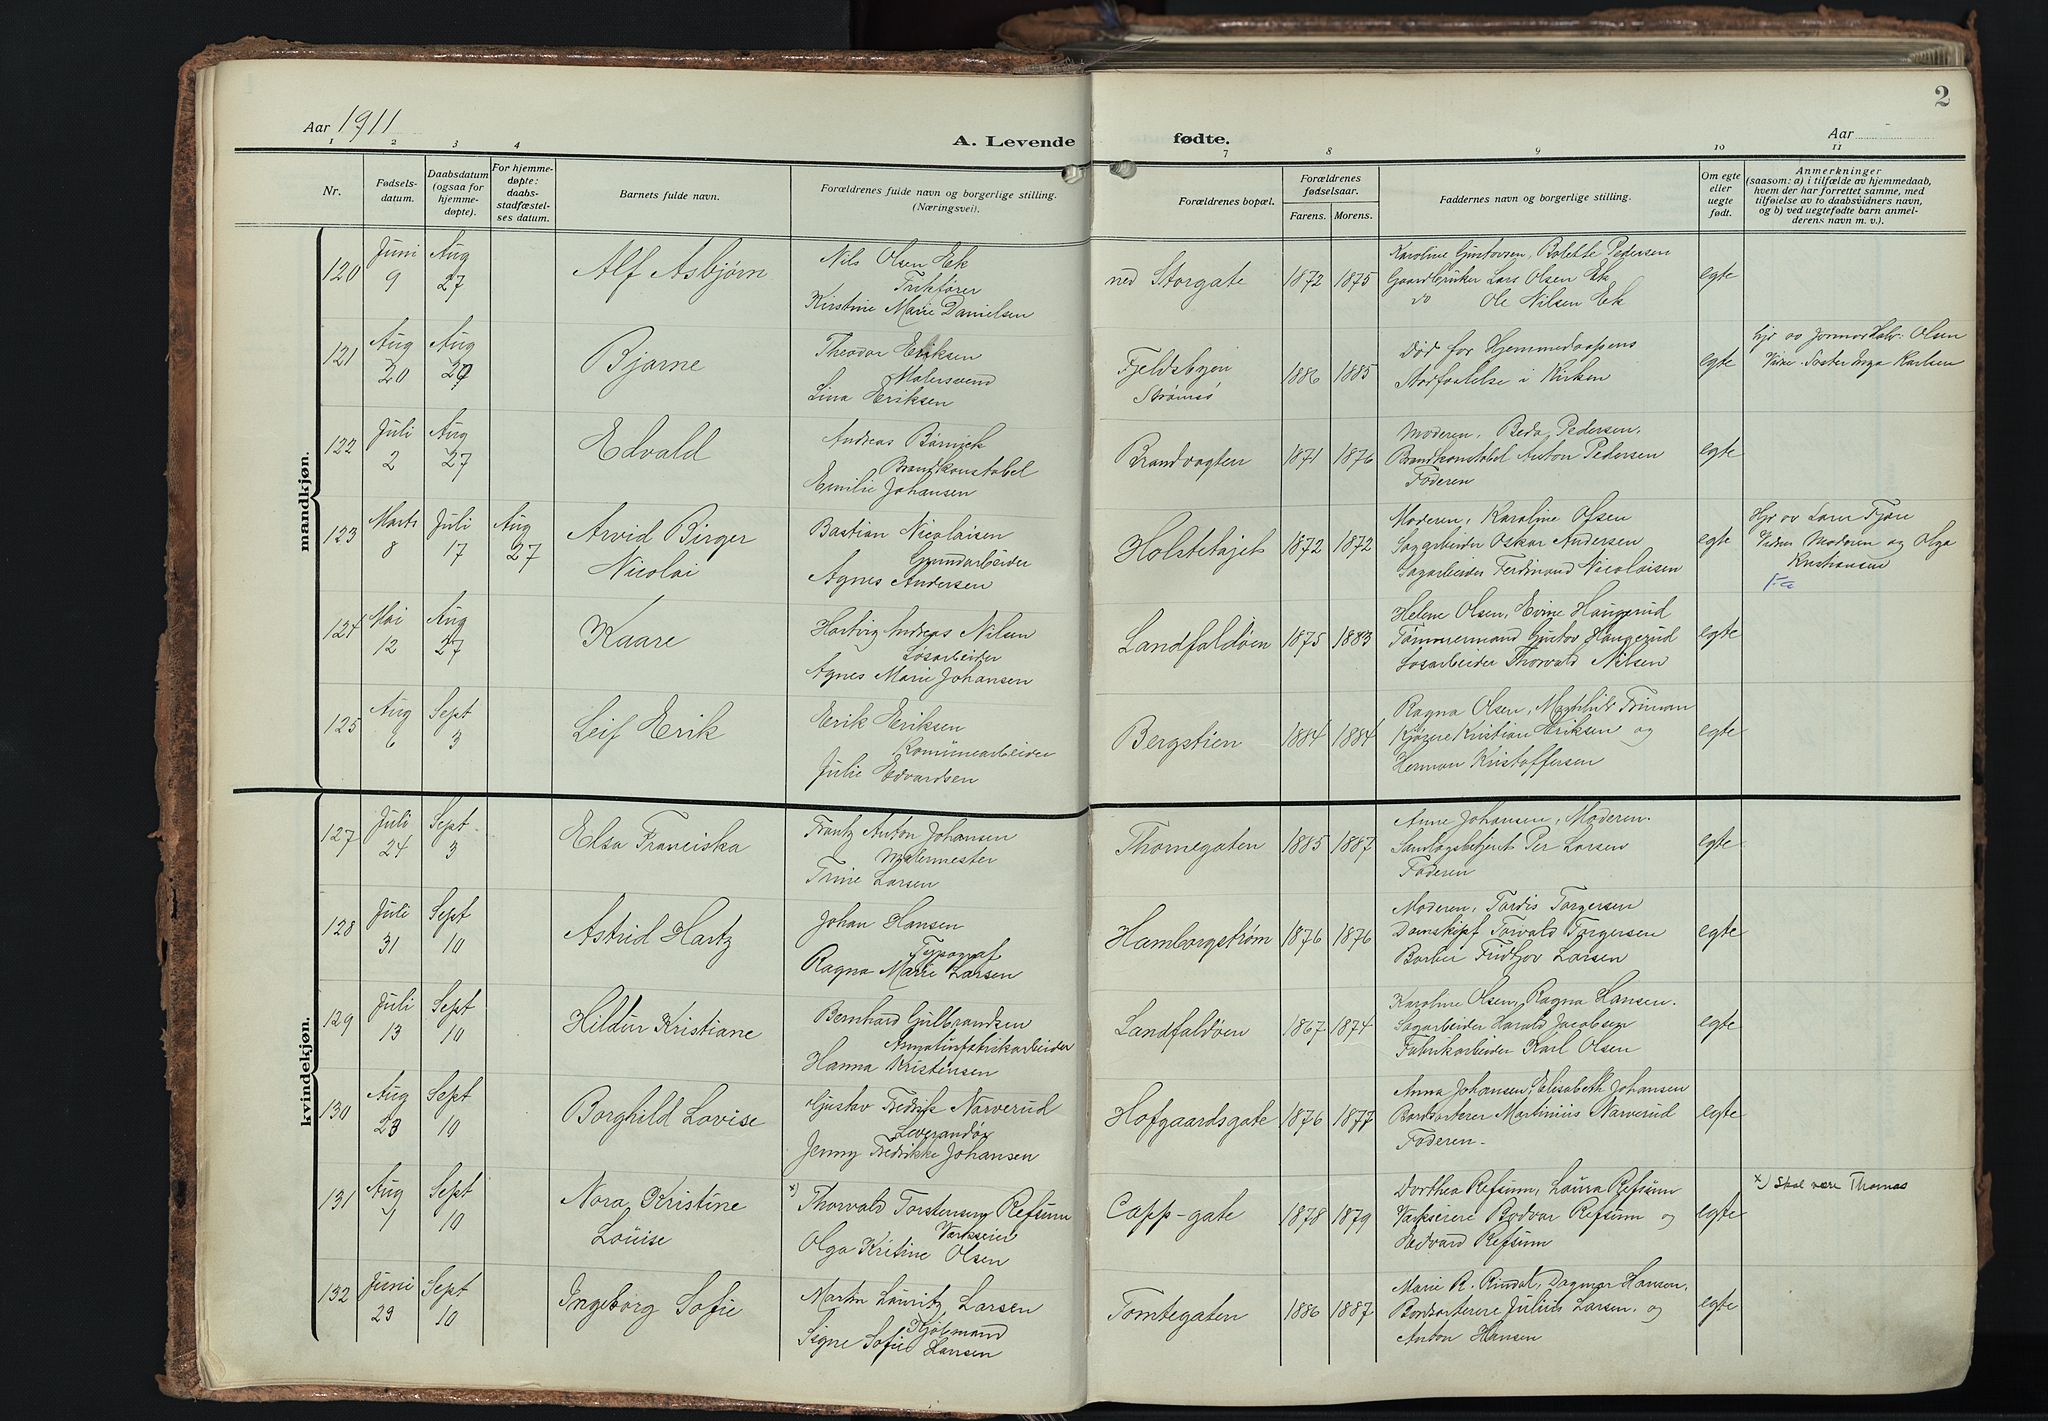 2
Aar 1911
A. Levende fødte.
Aar
1 2 3 4 7 8 9 10 11
Nr.
Fødsels-
datum.
Daabsdatum
(ogsaa for
hjemme-
døpte).
For hjemme-
døpte:
daabs-
stadfæstel-
ses datum.
Barnets fulde navn.
Forældrenes fulde navn og borgerlige stilling.
(Næringsvei).
Forældrenes bopæl.
Forældrenes
fødselsaar.
Farens. Morens.
Faddernes navn og borgerlige stilling.
Om egte
eller
uegte
født.
Anmerkninger
(saasom: a) i tilfælde av hjemmedaab,
hvem der har forrettet samme, med
tilføielse av to daabsvidners navn,
og b) ved uegtefødte barn anmel-
derens navn m. v.).
mandkjøn.
120
Juni
9
Aug
27
Alf Asbjørn
Nils Olsen Ek
Kirstine Marie Danielsen
ned Storgate
1872 1875
Karoline Gustovsen, Bolette Pedersen
Gaardbruker Lars Olsen Ek
do Ole Nilsen Ek
egte
121
Aug
20
Aug
27
Bjarne
Theodor Eriksen
Malersvend
Lina Eriksen
Fjeldsbyen
Strømsø
1886 1885
Død før Hjemmedaapens
Stadfæstelse i Kirken
egte
Hjr av Jormor Halv. Olsen
Vidne. Søster Inga Karlsen
122
Juli
2
Aug
27
Edvald
Andreas
Brandkonstabel
Emilie Johansen
Brandvagten
1871 1876
Moderen, Beda Pedersen.
Brandkonstabel Anton Pedersen
Faderen
egte
123
Marts
8
Juli
17
Aug
27
Arvid Birger
Nicolai
Bastian Nicolaisen
Grundarbeider
Agnes Andersen
1872 1872
Moderen, Karoline Olsen
Sagarbeider Oskar Andersen
Sagarbeider Ferdinand Nicolaisen
egte
Hjr av
Vidner Moderen og Olga
Kristiansen
124
Mai
12
Aug
27
Kaare
Hartvig Andreas Nilsen
Løsarbeider
Agnes Marie Johansen
Landfaldøen
1875 1883
Helene Olsen, Evine Haugerud
Tømmermand Gustav Haugerud
Løsarbeider Thorvald Nilsen
egte
125
Aug
6
Sept
3
Leif Erik
Erik Eriksen
Komunearbeider
Julie Edvardsen
Bergstien
1884 1884
Ragna Olsen, Maghild Friman
Kjørere Kristian Eriksen og
Herman Kristoffersen
egte
kvindekjøn.
127
Juli
24
Sept.
3
Elsa Franciska
Frantz Anton Johansen
Malermester
Trine Larsen
Thornegaten
1885 1887
Anne Johansen, Moderen.
Samlagsbetjent Per Larsen
Faderen
egte
128
Juli
31
Sept
10
Astrid Hartz
Johan Hansen
Typograf
Ragna Marie Larsen
Hamborgstrøm
1876 1876
Moderen, Tordis Torgersen
Damskipf Torvald Torgersen
Barber Fridtjov Larsen
egte
129
Juli
13
Sept
10
Hildur Kristiane
Bernhard Gulbrandsen
Armaturfabrikarbeider
Hanna Kristensen
Landfaldøen
1867 1874
Karoline Olsen, Ragna Hansen.
Sagarbeider Harald Jacobsen
Fabrikarbeider Karl Olsen
egte
130
Aug
23
Sept
10
Borghild Lovise
Gustav Fredrik Narverud
Leverandør
Jenny Fredrikke Johansen
Hofgaardsgate
1876 1877
Anna Johansen, Elisabeth Johansen
Bordsorterer Martinius Narverud
Faderen.
egte
131
Aug
1
Sept
10
Nora Kristine
Louise
x) Thorvald Torstensen Refsum
Værkseier
Olga Kritine Olsen
Capp-gate
1878 1879
Dorthea Refsum, Laura Refsum
Værkseiere Bodvar Refsum og
Edvard Refsum
egte
x) Skal være Thomas
132
Juni
23
Sept
10
Ingeborg Sofie
Martin Lauritz Larsen
Kjølemand
Signe Sofie Hansen
Tomtegaten
1886 1887
Marie R. Rindal, Dagmar Hansen.
Bordsorterere Julius Larsen, og
Anton Hansen
egte